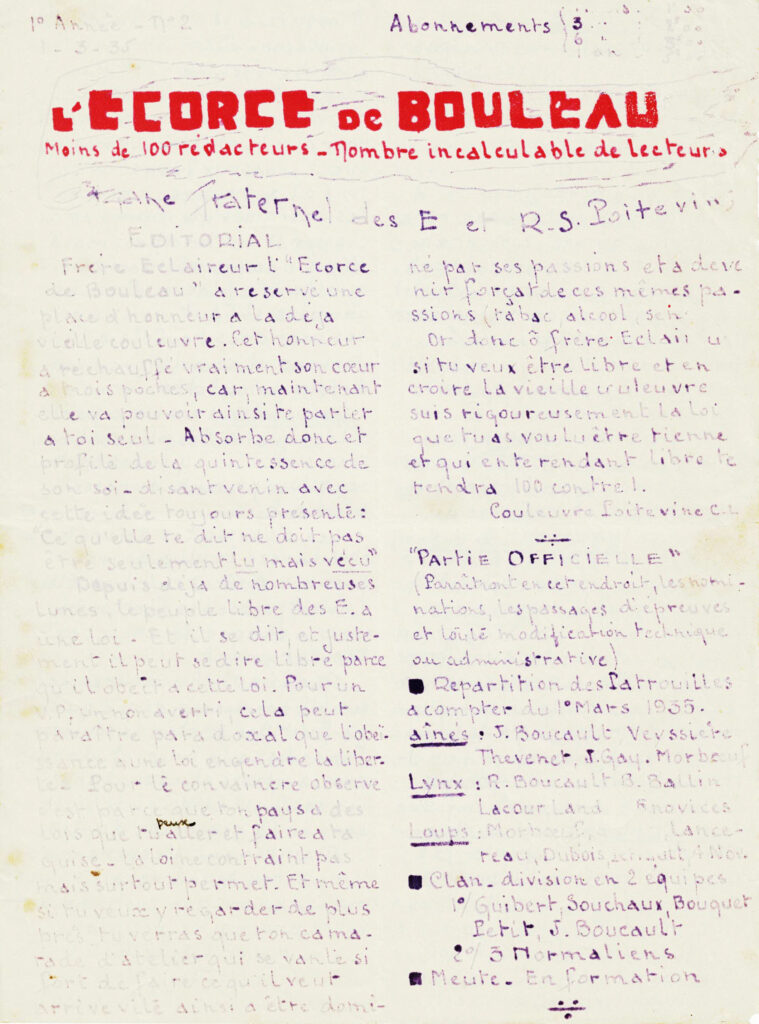 1º Année - Nº2
1 - 3 - 35
Abonnements
3
6
1 an
L'ECORCE DE BOULEAU
Moins de 100 rédacteurs - Nombre incalculable de lecteurs
Fraternel des E et R.S. Poitevins
EDITORIAL
Frère Eclaireur l'"Ecorce
de Bouleau" a réservé une
place d'honneur a la déja
vieille couleuvre. Cet honneur
a réchauffé vraiment son cœur
a trois poches, car, maintenant
elle va pouvoir ainsi te parler
a toi seul - Absorbe donc et
profite de la quintessence de
son soi-disant venin avec
cette idée toujours présente:
"Ce qu'elle te dit ne doit pas
être seulement lu mais vécu"
Depuis déja de nombreuses
lunes, le peuple libre des E. a
une loi - Et il se dit, et juste-
ment il peut se dire libre parce
qu'il obéit a cette loi. Pour un
V.P. un non averti, cela peut
paraître paradoxal que l'obéi-
ssance a une loi engendre la liber-
té - Pour te convaincre observe
c'est parce que ton pays a des
lois que tu peux aller et faire a ta
guise - La loi ne contraint pas
mais surtout permet. Et même
si tu veux y regarder de plus
près tu verras que ton cama-
rade d'atelier qui se vante si
fort de faire ce qu'il veut
arrive vite ainsi a être domi-
né par ses passions et a deve
nir forçat de ces mêmes pa-
ssions (tabac, alcool,
Or donc ô frère Eclai
si tu veux être libre et en
croire la vieille couleuvre
suis rigoureusement la loi
que tu as voulu être tienne
et qui en te rendant libre te
rendra 100 contre 1.
Couleuvre Poitevine C.L
"PARTIE OFFICIELLE"
(Paraîtront en cet endroit, les nomi-
nations, les passages d'épreuves
et toute modification technique
ou administrative)
■ Repartition des Patrouilles
a compter du 1º Mars 1935.
aînés : J. Boucault, Veyssière
Thevenet, J. Gay. Morbœuf
Lynx : R. Boucault B. Ballin
Lacour, Land novices
Loups : Morbœuf, Lance-
reau, Dubois,
■ Clan - division en 2 équipes
1º/ Guibert, Souchaux, Bouquet
Petit, J. Boucault
2º/ 3 Normaliens
■ Meute - En formation